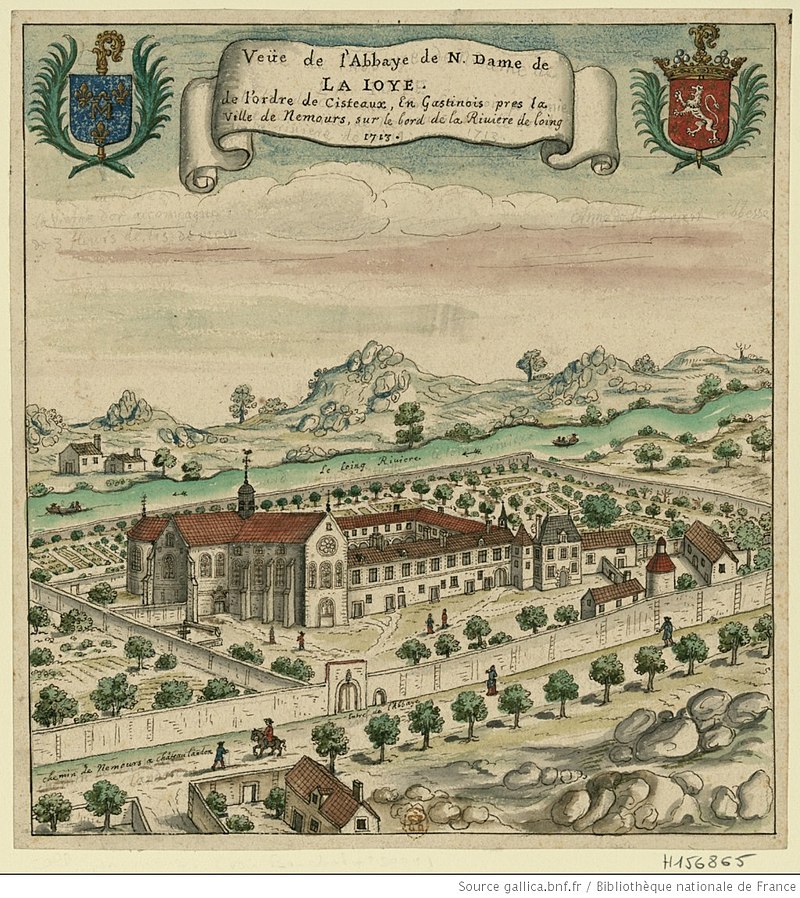 Veüe de l'Abbaye de N. Dame de
LA IOYE.
de l'ordre de Cisteaux, En Gastinois pres la
Ville de Nemours, sur le bord de la Riviere de loing
1713.
Le loing Riviere
Entrée de l'Abbaye
chemin de Nemours a chateaulandon
H156865
Source gallica.bnf.fr / Bibliothèque nationale de France